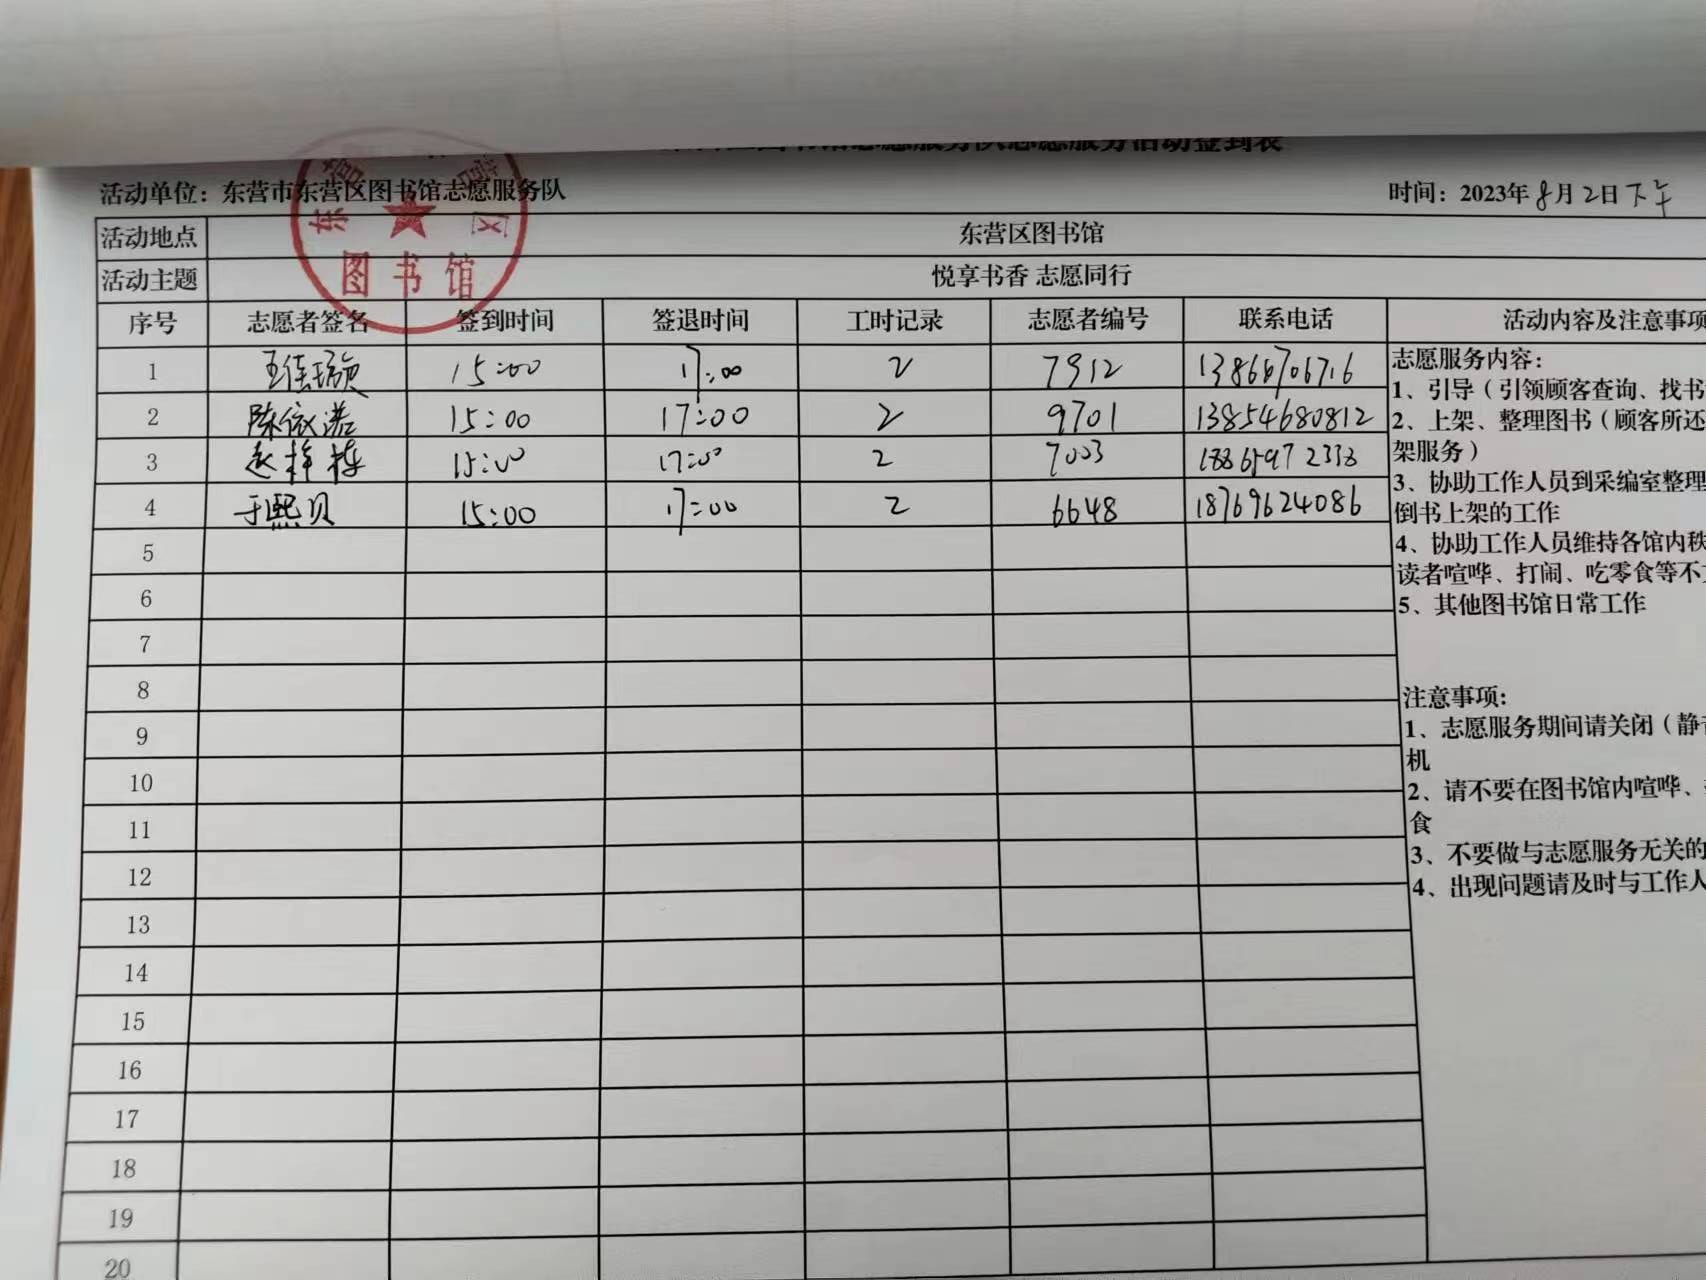 图书馆志愿服务队志愿服务活动签到表
活动单位：东营市东营区图书馆志愿服务队 时间：2023年8月2日下午
东营 营区
图书馆
活动地点 东营区图书馆
活动主题 悦享书香 志愿同行
序号 志愿者签名 签到时间 签退时间 工时记录 志愿者编号 联系电话 活动内容及注意事项
1 王佳璇 15:00 17:00 2 7912 13866706716
2 陈依诺 15:00 17:00 2 9701 13854680812
3 赵梓栋 15:00 17:00 2 7003 18865972338
4 于熙贝 15:00 17:00 2 6648 18769624086
5
6
7
8
9
10
11
12
13
14
15
16
17
18
19
20
志愿服务内容：
1、引导（引领顾客查询、找书
2、上架、整理图书（顾客所还
架服务）
3、协助工作人员到采编室整理
倒书上架的工作
4、协助工作人员维持各馆内秩
读者喧哗、打闹、吃零食等不
5、其他图书馆日常工作
注意事项：
1、志愿服务期间请关闭（静
机
2、请不要在图书馆内喧哗、
食
3、不要做与志愿服务无关的
4、出现问题请及时与工作人